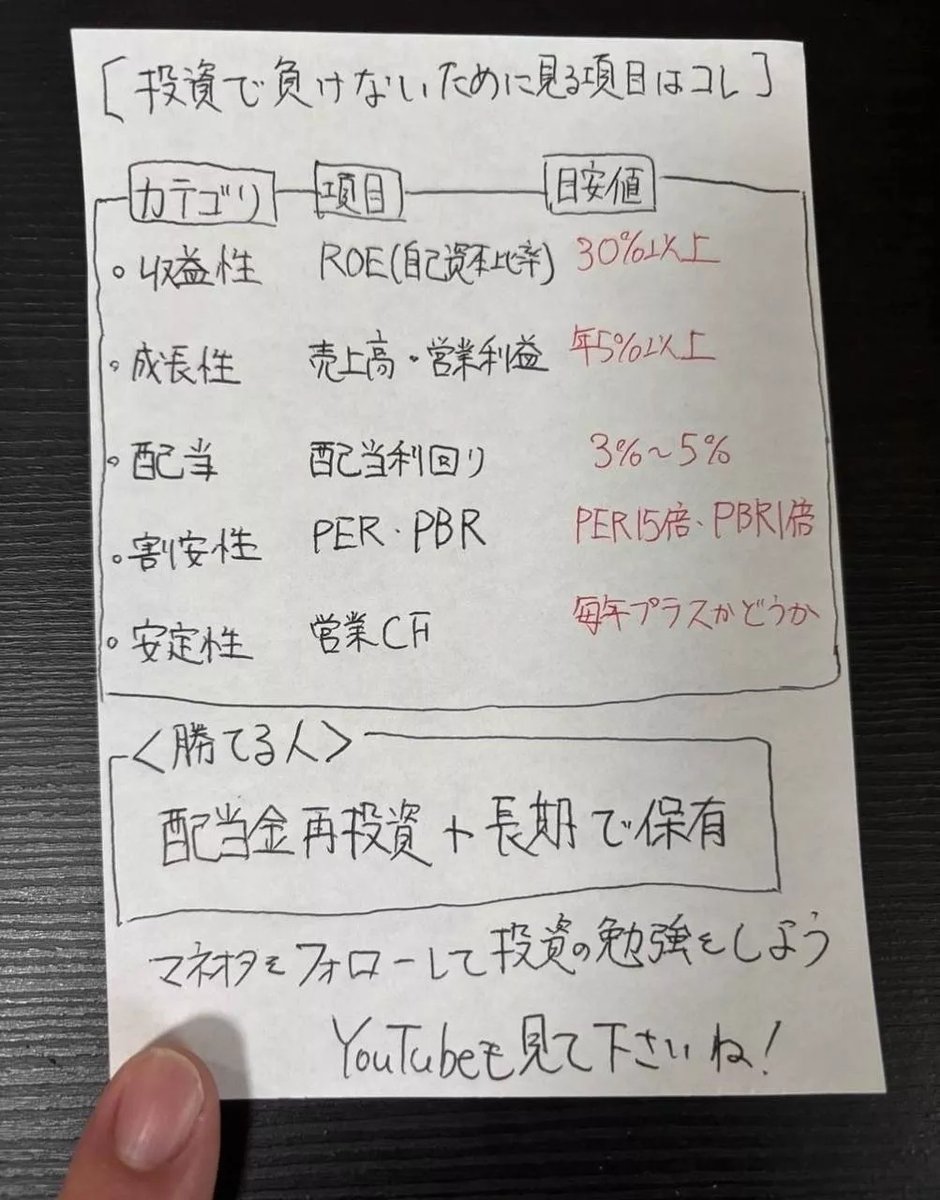 [投資で負けないために見る項目はコレ]
カテゴリ 項目 目安値
・収益性 ROE(自己資本比率) 30%以上
・成長性 売上高・営業利益 年5%以上
・配当 配当利回り 3%~5%
・割安性 PER・PBR PER15倍・PBR1倍
・安定性 営業CF 毎年プラスかどうか
<勝てる人>
配当金再投資+長期で保有
マネオタをフォローして投資の勉強をしよう
YouTubeも見て下さいね!